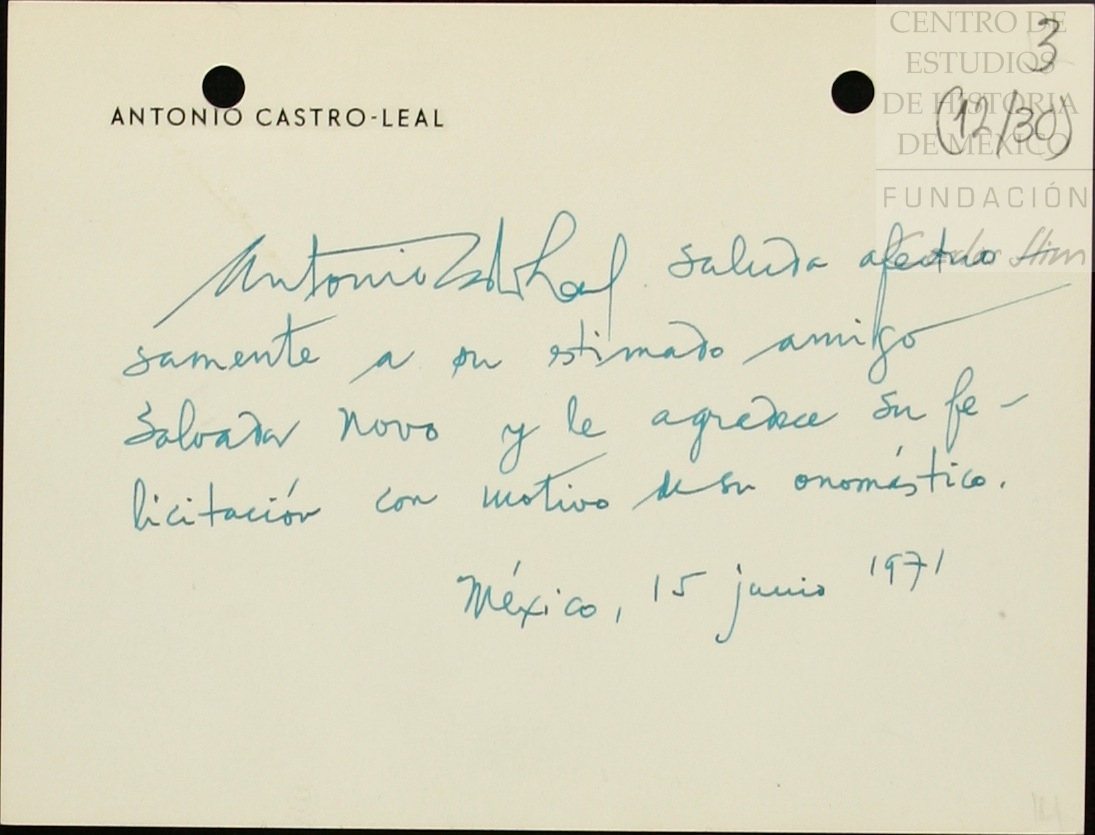 CENTRO DE
ESTUDIOS
DE HISTORIA
DE MÉXICO
FUNDACIÓN
3
(12/30)
ANTONIO CASTRO-LEAL
Antonio Castro Leal saluda afectuo
samente a su estimado amigo
Salvador Novo y le agradece su fe-
licitación con motivo de su onomástico.
México, 15 junio 1971